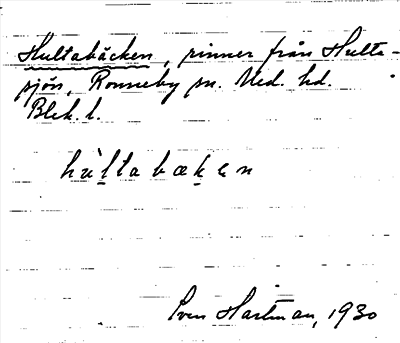 Hultabäcken, rinner från Hulta-
sjön, Ronneby sn. Med. hd.
Blek. l.
hùltabækən
Sven Hartman, 1930